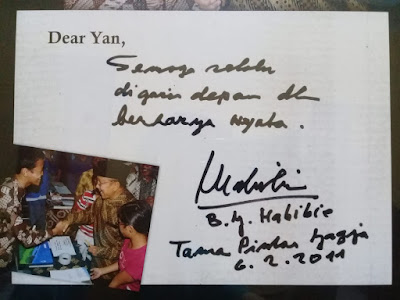 Dear Yan,
Semoga selalu
digaris depan dlm
berkarya nyata.
B. J. Habibie
Taman Pintar Yogya
6. 2. 2011